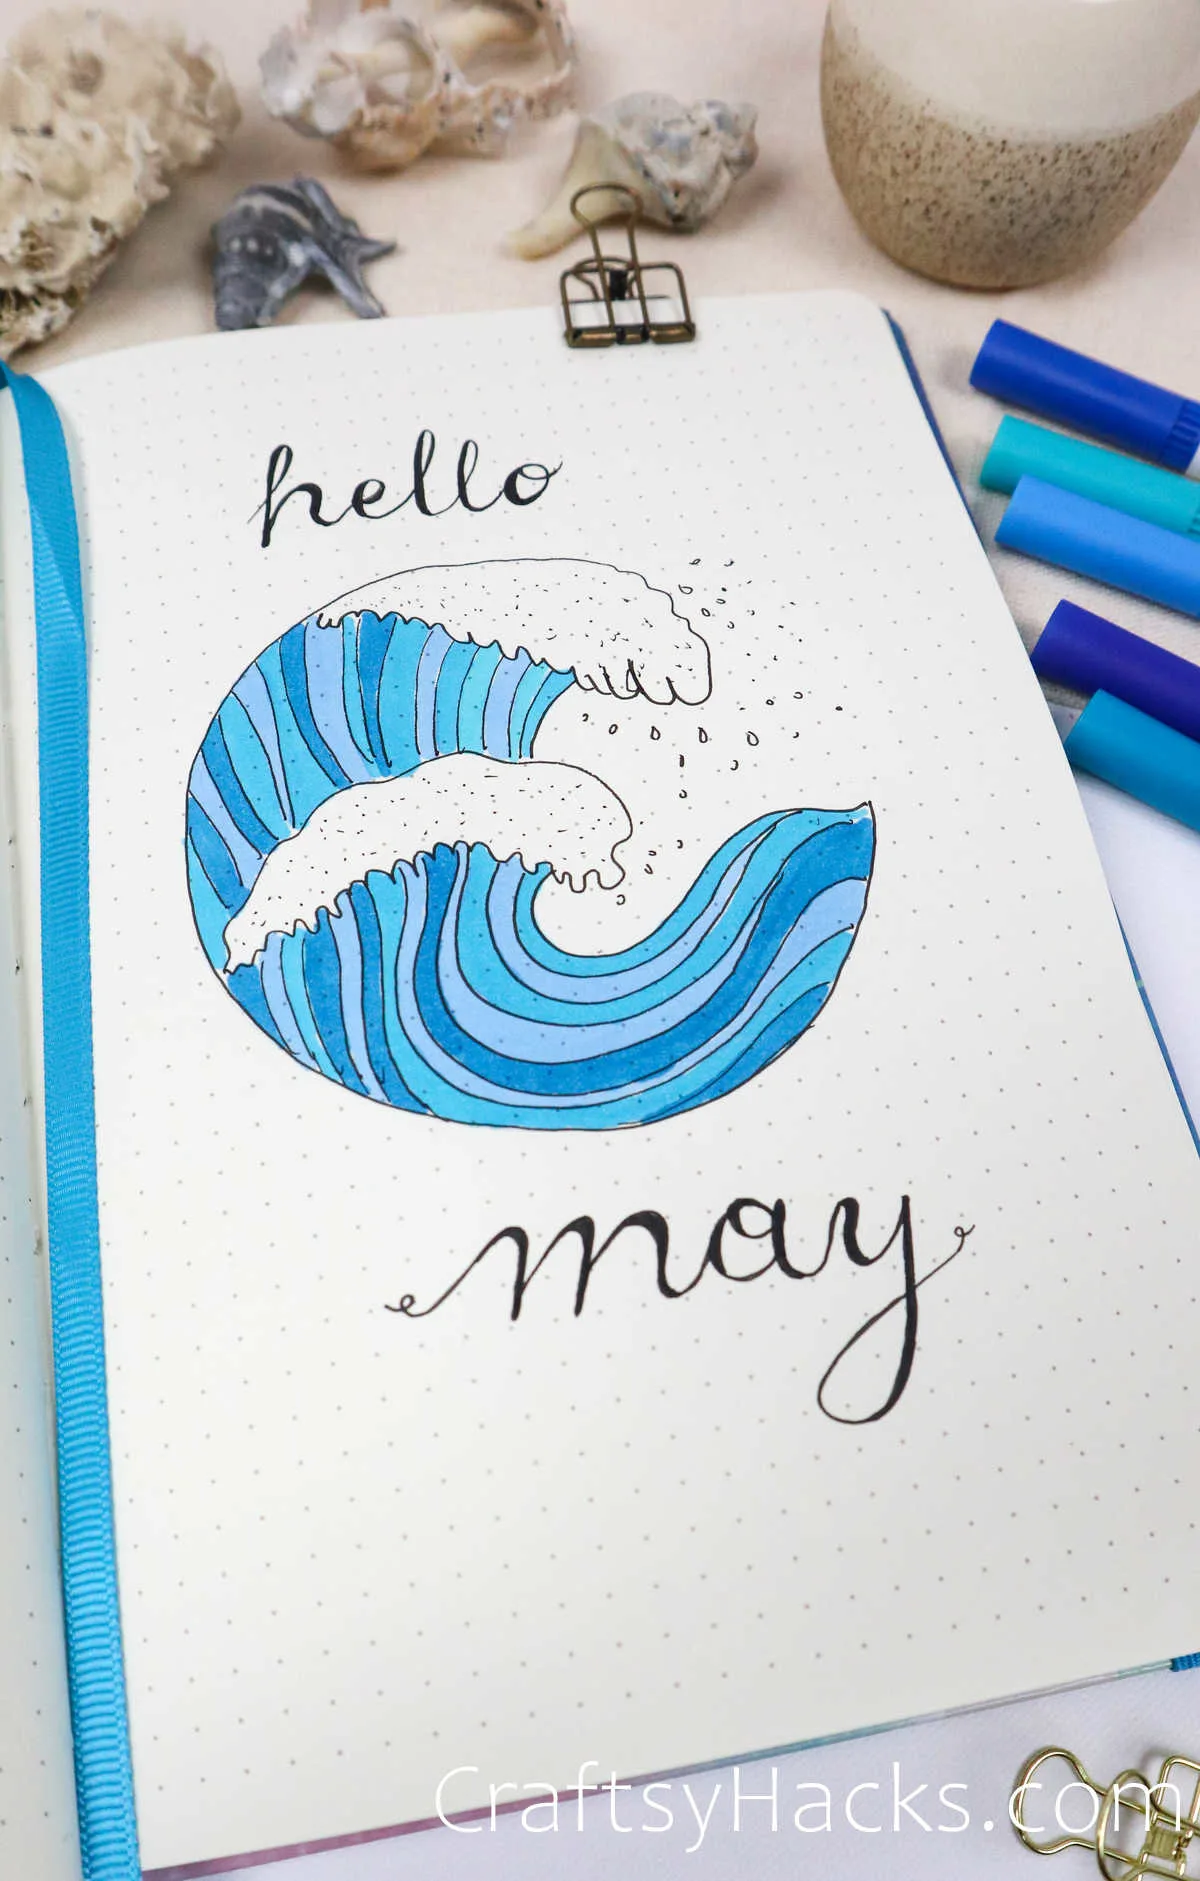 hello
may
CraftsyHacks.com